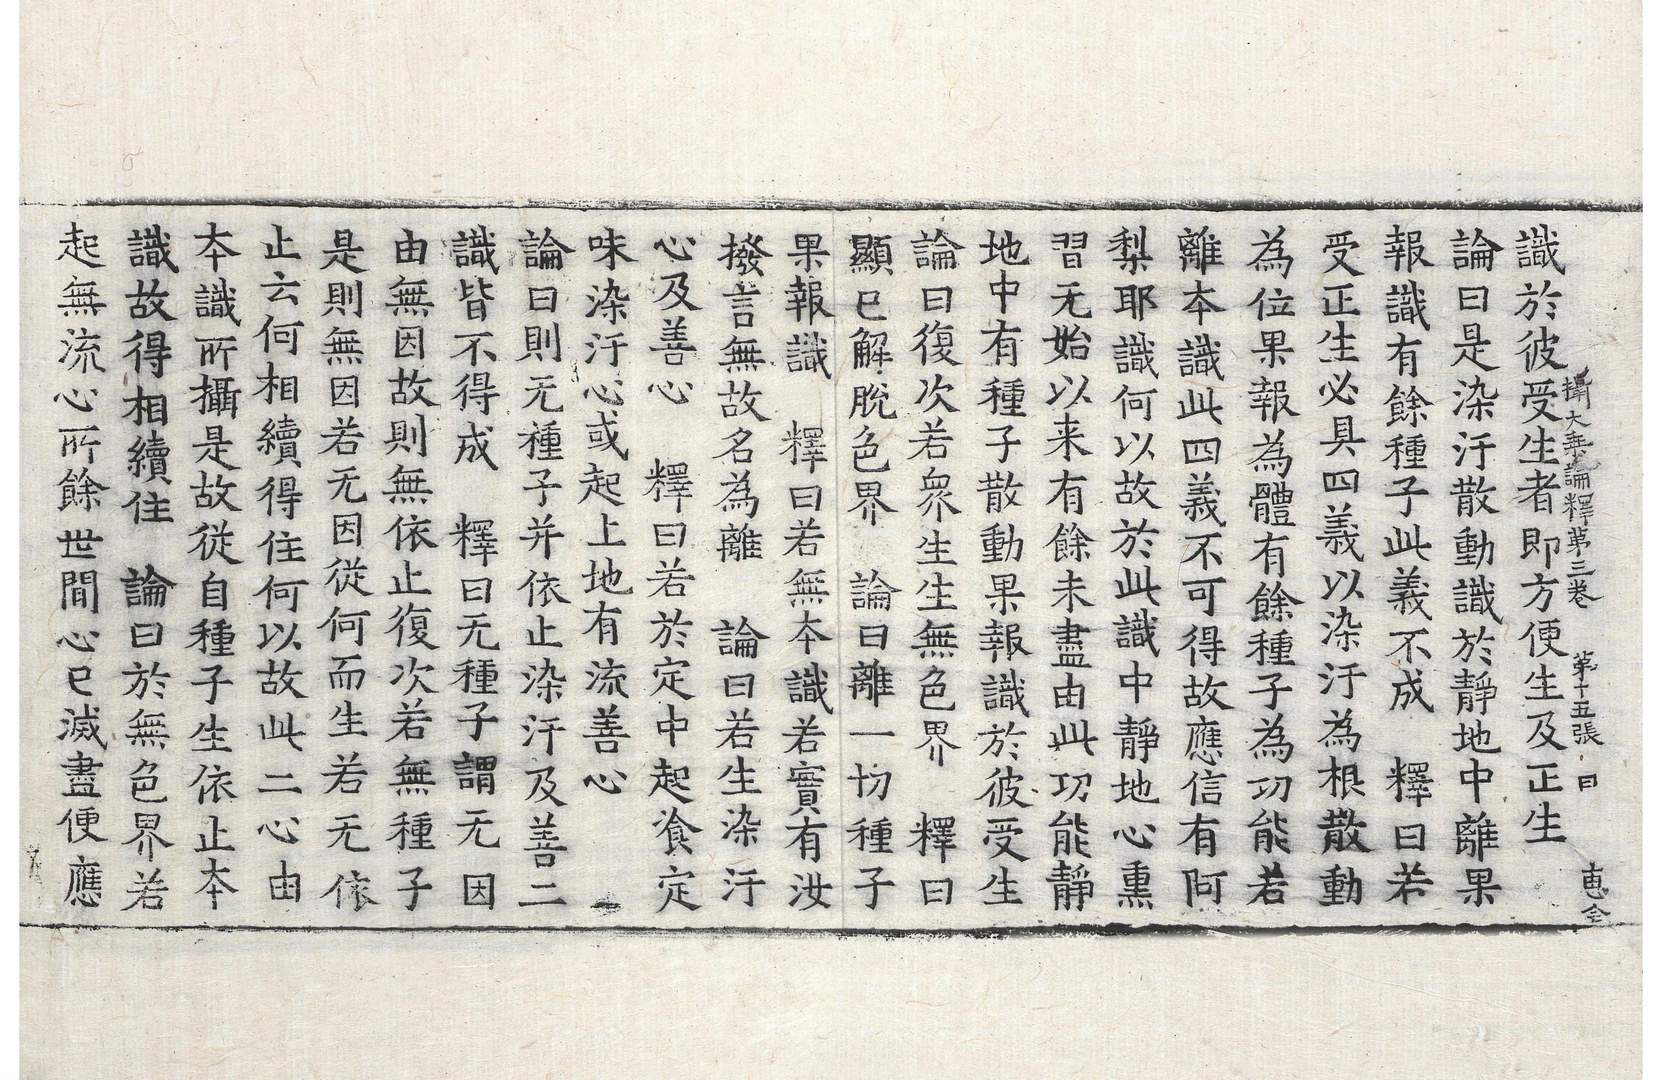 攝大乘論釋第三卷 第十五張 曰 惠全
識於彼受生者即方便生及正生
論曰是染汙散動識於靜地中離果
報識有餘種子此義不成 釋曰若
受正生必具四義以染汙為根散動
為位果報為體有餘種子為功能若
離本識此四義不可得故應信有阿
梨耶識何以故於此識中靜地心熏
習无始以来有餘未盡由此功能靜
地中有種子散動果報識於彼受生
論曰復次若衆生生無色界 釋曰
顯已解脫色界 論曰離一切種子
果報識 釋曰若無本識若實有汝
撥言無故名為離 論曰若生染汙
心及善心 釋曰若於定中起飡定
味染汙心或起上地有流善心
論曰則无種子并依止染汙及善二
識皆不得成 釋曰无種子謂无因
由無因故則無依止復次若無種子
是則無因若无因從何而生若无依
止云何相續得住何以故此二心由
本識所攝是故從自種子生依止本
識故得相續住 論曰於無色界若
起無流心所餘世間心已滅盡便應